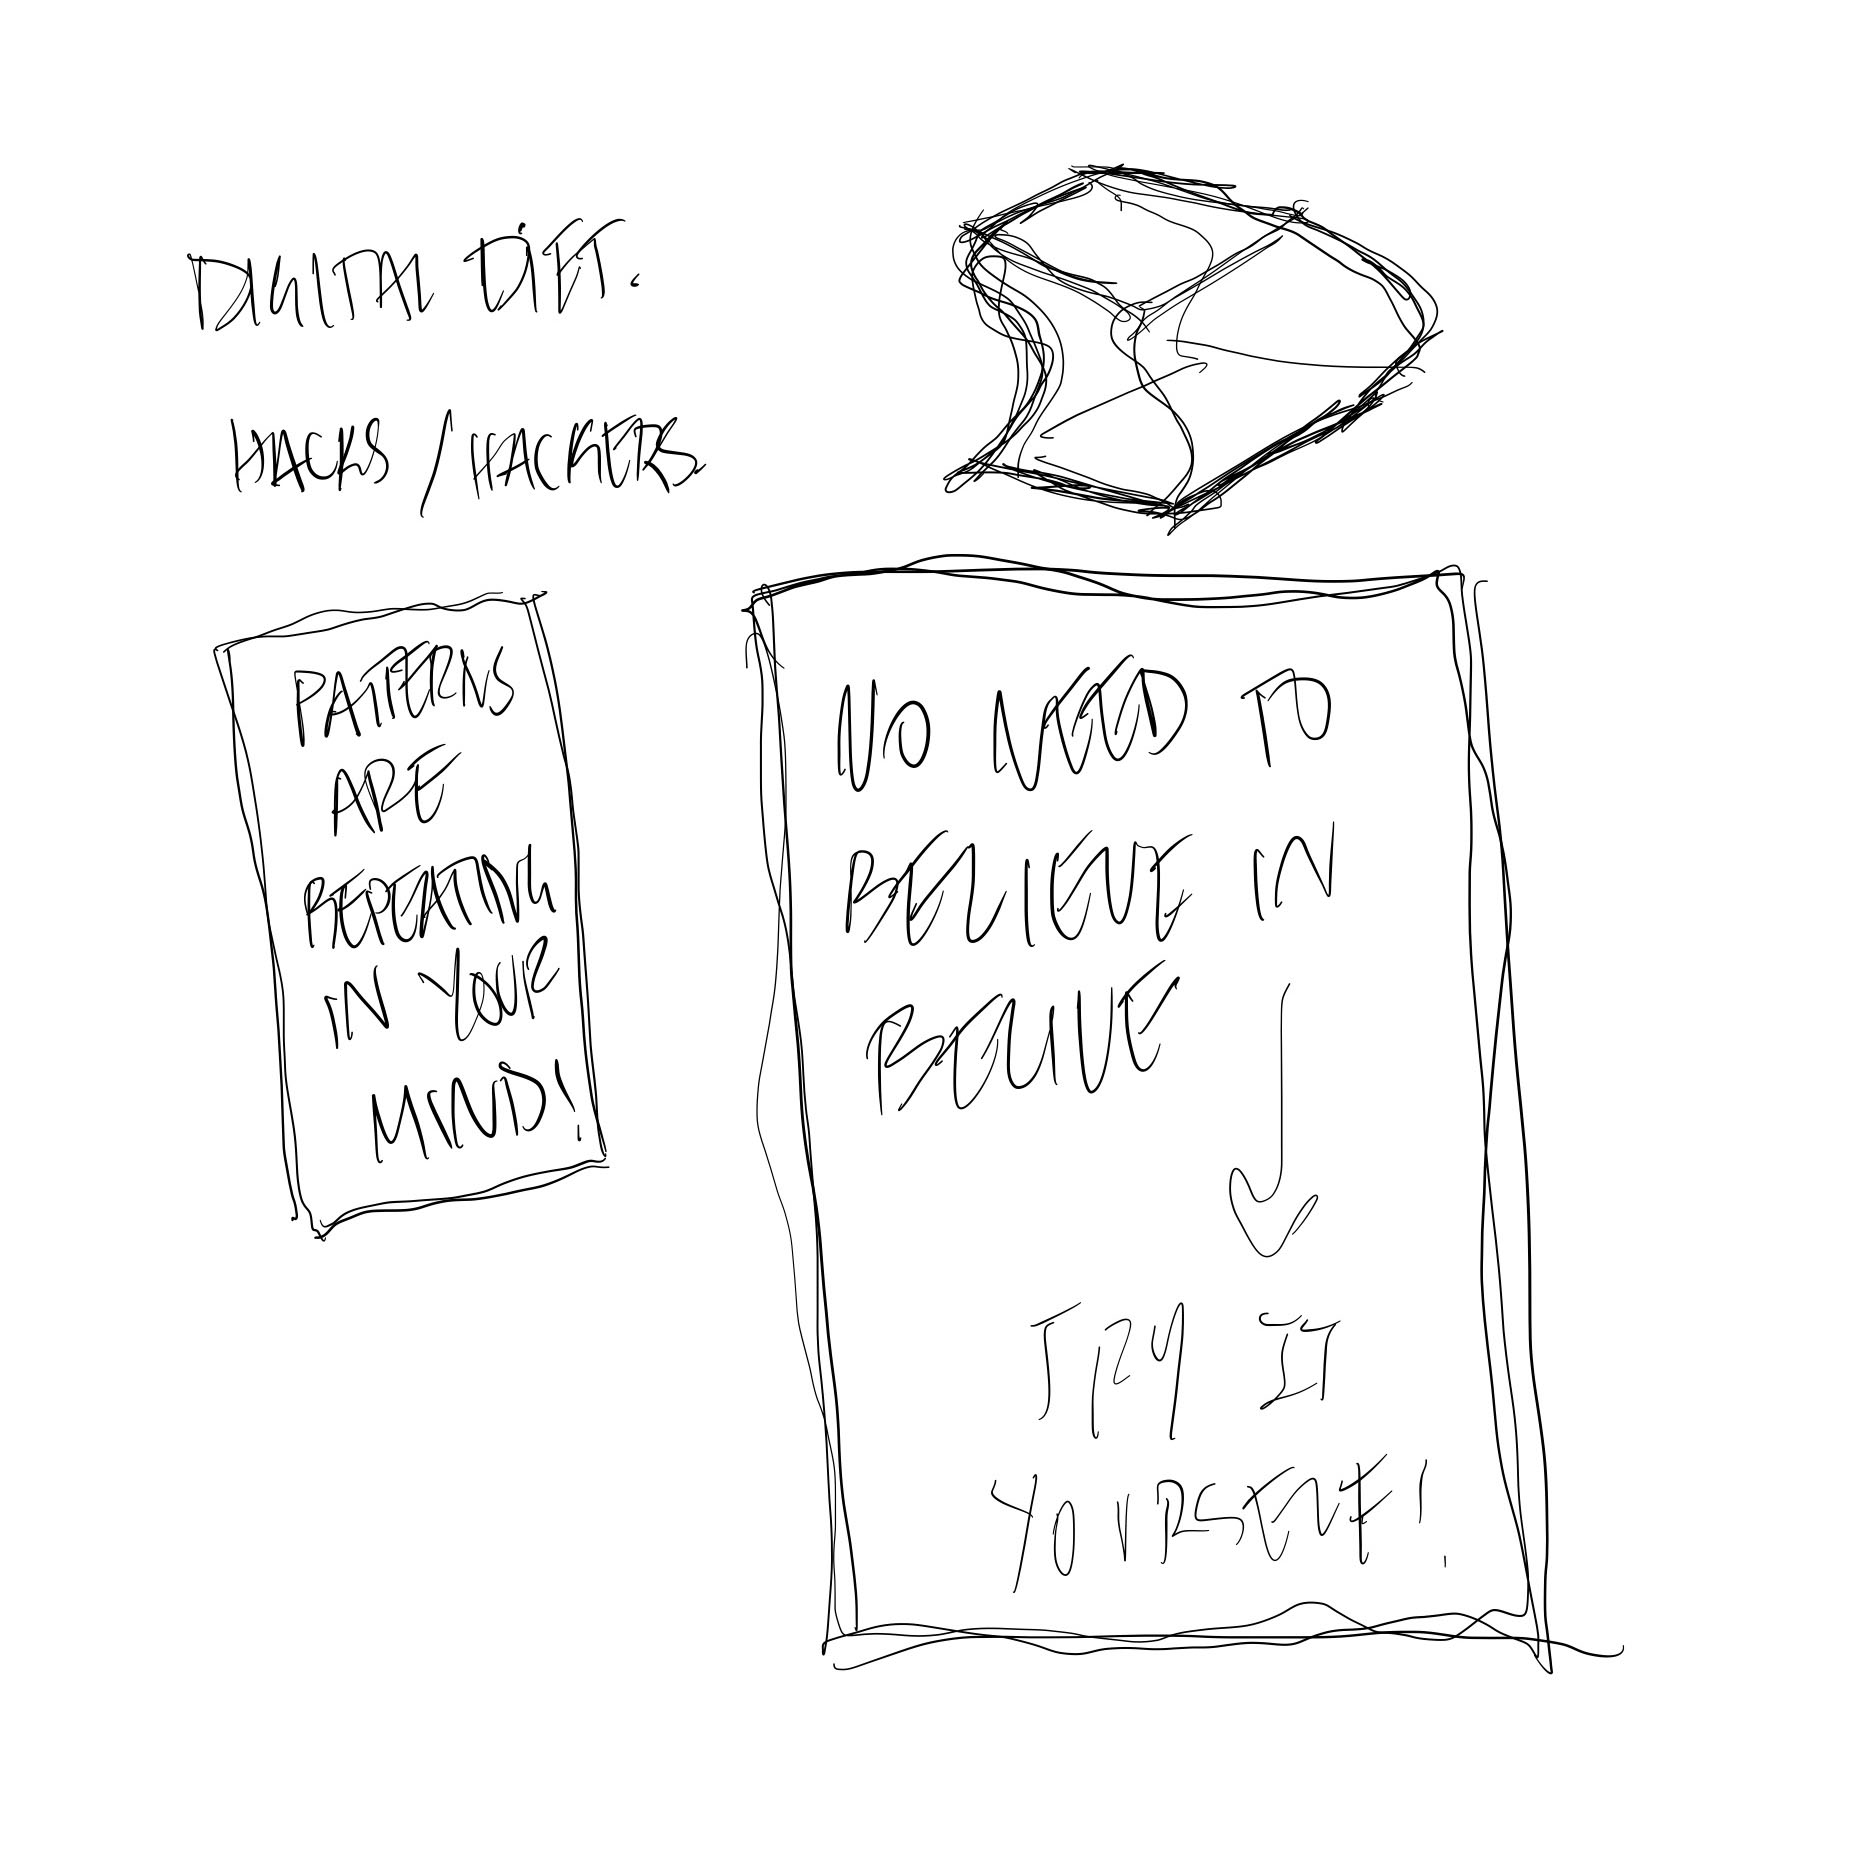 DIGITAL DIET.
HACKS / HACKERS.
PATTERNS
ARE
REPEATING
IN YOUR
MIND!
NO NEED TO
BELIEVE IN
BELIVE
TRY IT
YOURSELF!